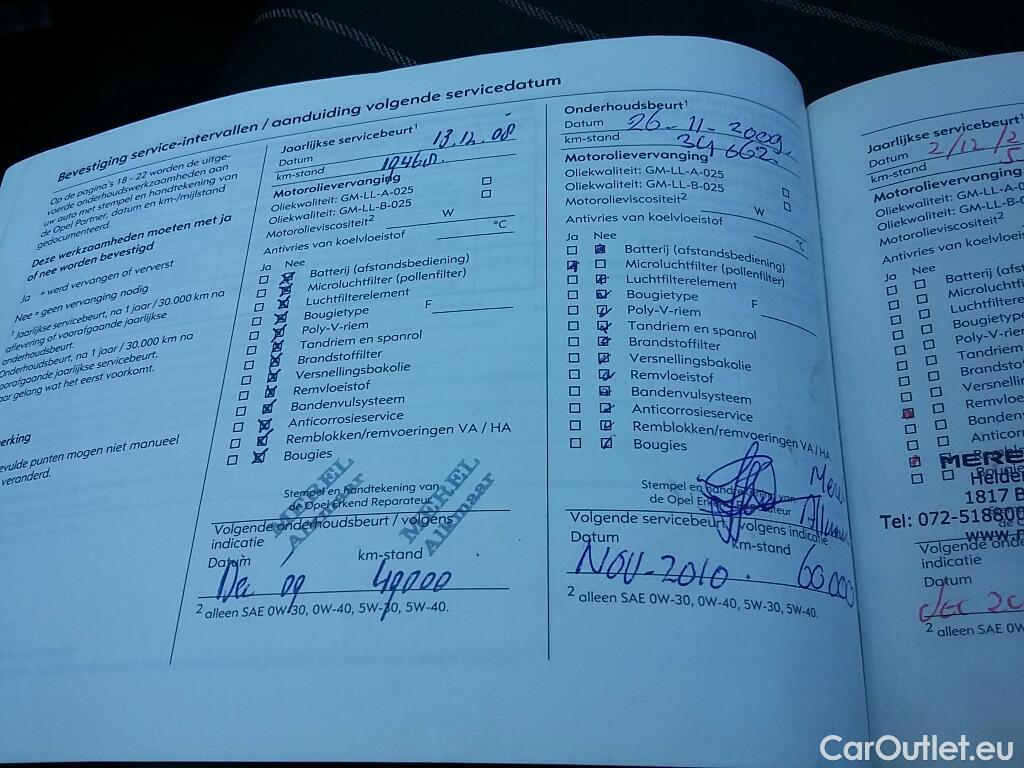 Bevestiging service-intervallen / aanduiding volgende servicedatum
Op de pagina's 18 - 22 worden de uitge-
voerde onderhoudswerkzaamheden aan
uw auto met stempel en handtekening van
de Opel Partner, datum en km-/mijlstand
gedocumenteerd.
Deze werkzaamheden moeten met ja
of nee worden bevestigd
Ja = werd vervangen of ververst
Nee = geen vervanging nodig
1 Jaarlijkse servicebeurt, na 1 jaar / 30.000 km na
aflevering of voorafgaande jaarlijkse
onderhoudsbeurt.
Onderhoudsbeurt, na 1 jaar / 30.000 km na
voorafgaande jaarlijkse servicebeurt.
aar gelang wat het eerst voorkomt.
erking
evulde punten mogen niet manueel
veranderd.
Jaarlijkse servicebeurt1
Datum 13.12.08
km-stand 19468.
Motorolievervanging
Oliekwaliteit: GM-LL-A-025
Oliekwaliteit: GM-LL-B-025
Motorolieviscositeit2 W
Antivries van koelvloeistof °C
Ja Nee
Batterij (afstandsbediening)
Microluchtfilter (pollenfilter)
Luchtfilterelement
Bougietype F
Poly-V-riem
Tandriem en spanrol
Brandstoffilter
Versnellingsbakolie
Remvloeistof
Bandenvulsysteem
Anticorrosieservice
Remblokken/remvoeringen VA / HA
Bougies
MEREL
Alkmaar
MEREL
Alkmaar
Stempel en handtekening van
de Opel Erkend Reparateur
Volgende onderhoudsbeurt / volgens
indicatie
Datum km-stand
Dec 09 49000
2 alleen SAE 0W-30, 0W-40, 5W-30, 5W-40.
Onderhoudsbeurt1
Datum 26-11-2009.
km-stand 34662.
Motorolievervanging
Oliekwaliteit: GM-LL-A-025
Oliekwaliteit: GM-LL-B-025
Motorolieviscositeit2 W
Antivries van koelvloeistof °C
Ja Nee
Batterij (afstandsbediening)
Microluchtfilter (pollenfilter)
Luchtfilterelement
Bougietype F
Poly-V-riem
Tandriem en spanrol
Brandstoffilter
Versnellingsbakolie
Remvloeistof
Bandenvulsysteem
Anticorrosieservice
Remblokken/remvoeringen VA / HA
Bougies
Stempel en handtekening van
de Opel Erkend Reparateur
Volgende servicebeurt / volgens indicatie
Datum km-stand
NOV-2010. 60.000
2 alleen SAE 0W-30, 0W-40, 5W-30, 5W-40.
Jaarlijkse servicebeurt1
Datum 2/12/2
km-stand 5
Motorolievervanging
Oliekwaliteit: GM-LL-A
Oliekwaliteit: GM-LL-B
Motorolieviscositeit2
Antivries van koelvloeis
Ja Nee
Batterij (afst
Microluchtf
Luchtfiltere
Bougietype
Poly-V-rien
Tandriem
Brandsto
Versnelli
Remvloe
Banden
Anticor
MERE
Helder
1817 B
Tel: 072-518800
Volgende onde
indicatie
Datum
dec 20
2 alleen SAE 0W-
CarOutlet.eu